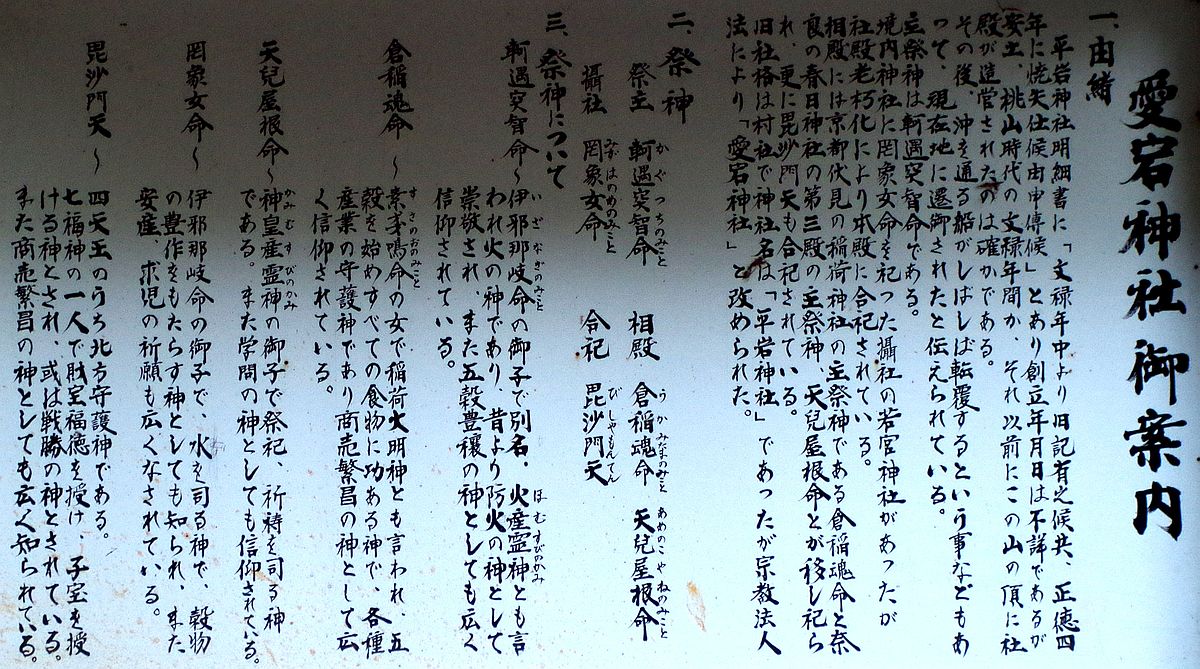 愛宕神社御案内
一、由緒
平岩神社明細書に「文禄年中より旧記有之候共、正徳四
年に焼失仕候由申傳候」とあり創立年月日は不詳であるが
安土、桃山時代の文禄年間か、それ以前にこの山の頂に社
殿が造営されたのは確かである。
その後、沖を通る船がしばしば転覆するという事などもあ
って、現在地に遷御されたと伝えられている。
主祭神は軻遇突智命である。
境内神社に罔象女命を祀った攝社の若宮神社があったが
社殿老朽化により本殿に合祀されている。
相殿には京都伏見の稲荷神社の主祭神である倉稲魂命と奈
良の春日神社の第三殿の主祭神、天兒屋根命とが移し祀ら
れ、更に毘沙門天も合祀されている。
旧社格は村社で神社名は「平岩神社」であったが宗教法人
法により「愛宕神社」と改められた。
二、祭神
祭主 軻遇突智命 相殿 倉稲魂命 天兒屋根命
かぐつちのみこと うかみたまのみこと あめのこやねのみこと
攝社 罔象女命 合祀 毘沙門天
みずはのめのみこと びしゃもんてん
三、祭神について
軻遇突智命〜伊邪那岐命の御子で別名、火産霊神とも言
いざなぎのみこと ほむすびのかみ
われ火の神であり、昔より防火の神として
崇敬され、また五穀豊穰の神としても広く
信仰されている。
倉稲魂命〜素戔鳴命の女で稲荷大明神とも言われ、五
すさのおのみこと
穀を始めすべての食物に功ある神で、各種
産業の守護神であり商売繁昌の神として広
く信仰されている。
天兒屋根命〜神皇産霊神の御子で祭祀、祈祷を司る神
かみむすびのかみ
である。また学問の神としても信仰されている。
罔象女命〜伊邪那岐命の御子で、水を司る神で、穀物
の豊作をもたらす神としても知られ、また
安産、求児の祈願も広くなされている。
毘沙門天〜四天王のうち北方守護神である。
七福神の一人で財宝福徳を授け、子宝を授
ける神とされ、或は戦勝の神とされている。
また商売繁昌の神としても広く知られている。